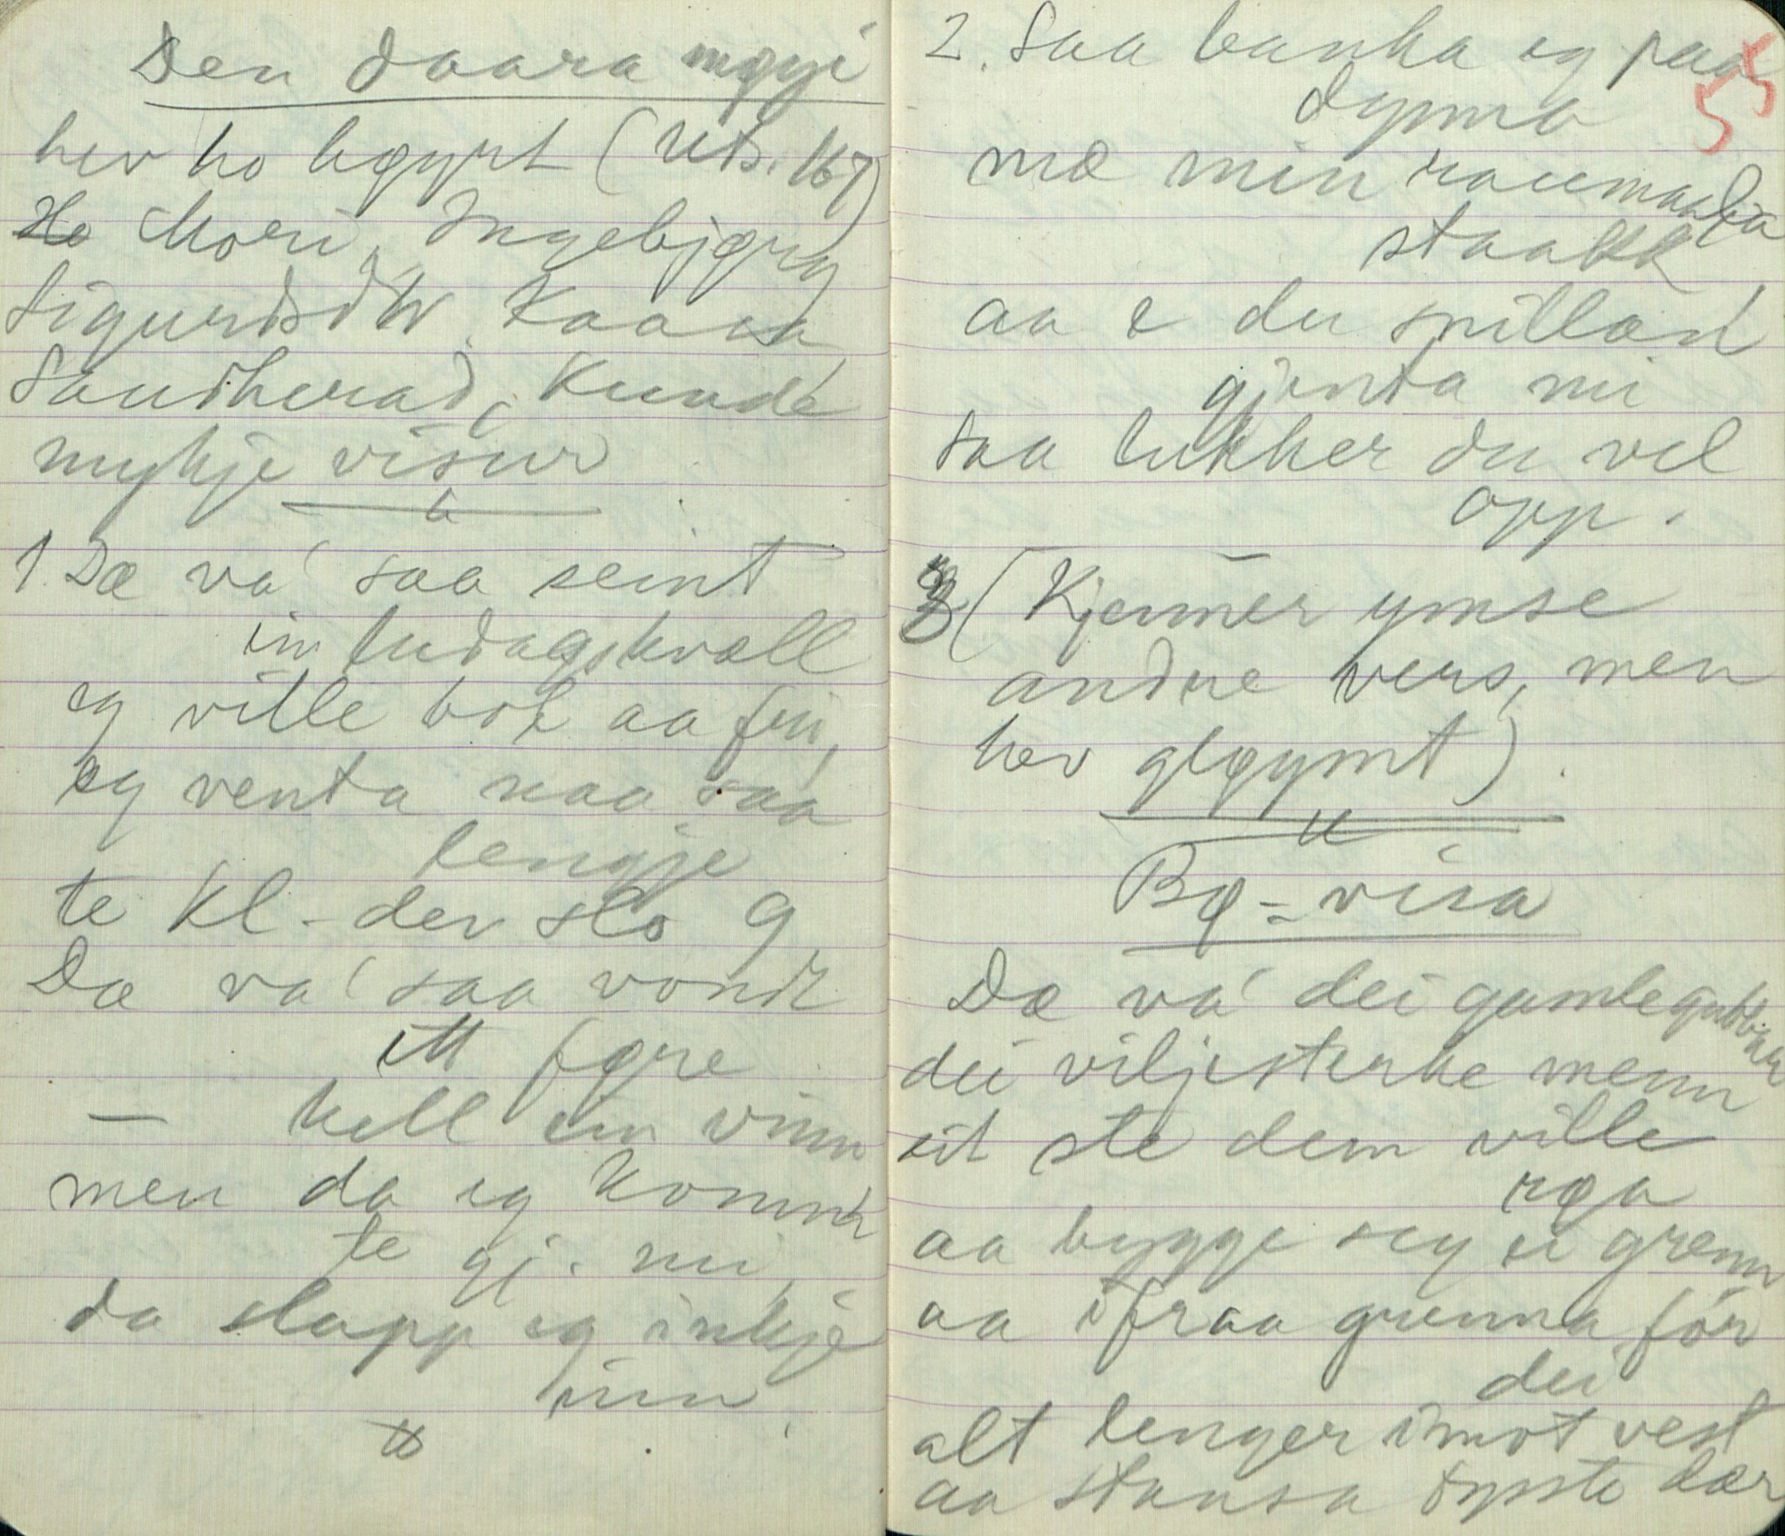 Den daara møyi
hev ho høyrt (Uts. 167)
Ho Mori, Ingebjørg
Sigurdsdtr. Kaasa
Saudherad, Kunde
mykje visur
1. Dæ va' saa seint
ein ludagskvæll
eg ville bol aa fri,
eg venta naa saa
lengje
te Kl - der slo 9
Dæ va' saa vondt
itt føre
— kell ein vinn
men da eg komm
te gj. mi,
da slapp eg inkje
inn.
2. Saa banka eg paa
dynna
mæ min raumaalia
staakk
aa e du snillad
gjenta mi
saa lukker du vel
opp.
3 (Kjenner ymse
andre vers, men
hev gløymt).
Bø-visa
Dæ va' dei gamlegubbikar
dei viljesterke menn
eit ste dem ville
røa
aa bygge seg ei grenn
aa ifraa grenna for
dei
alt lenger imot vest
aa stansa dysste dær
55